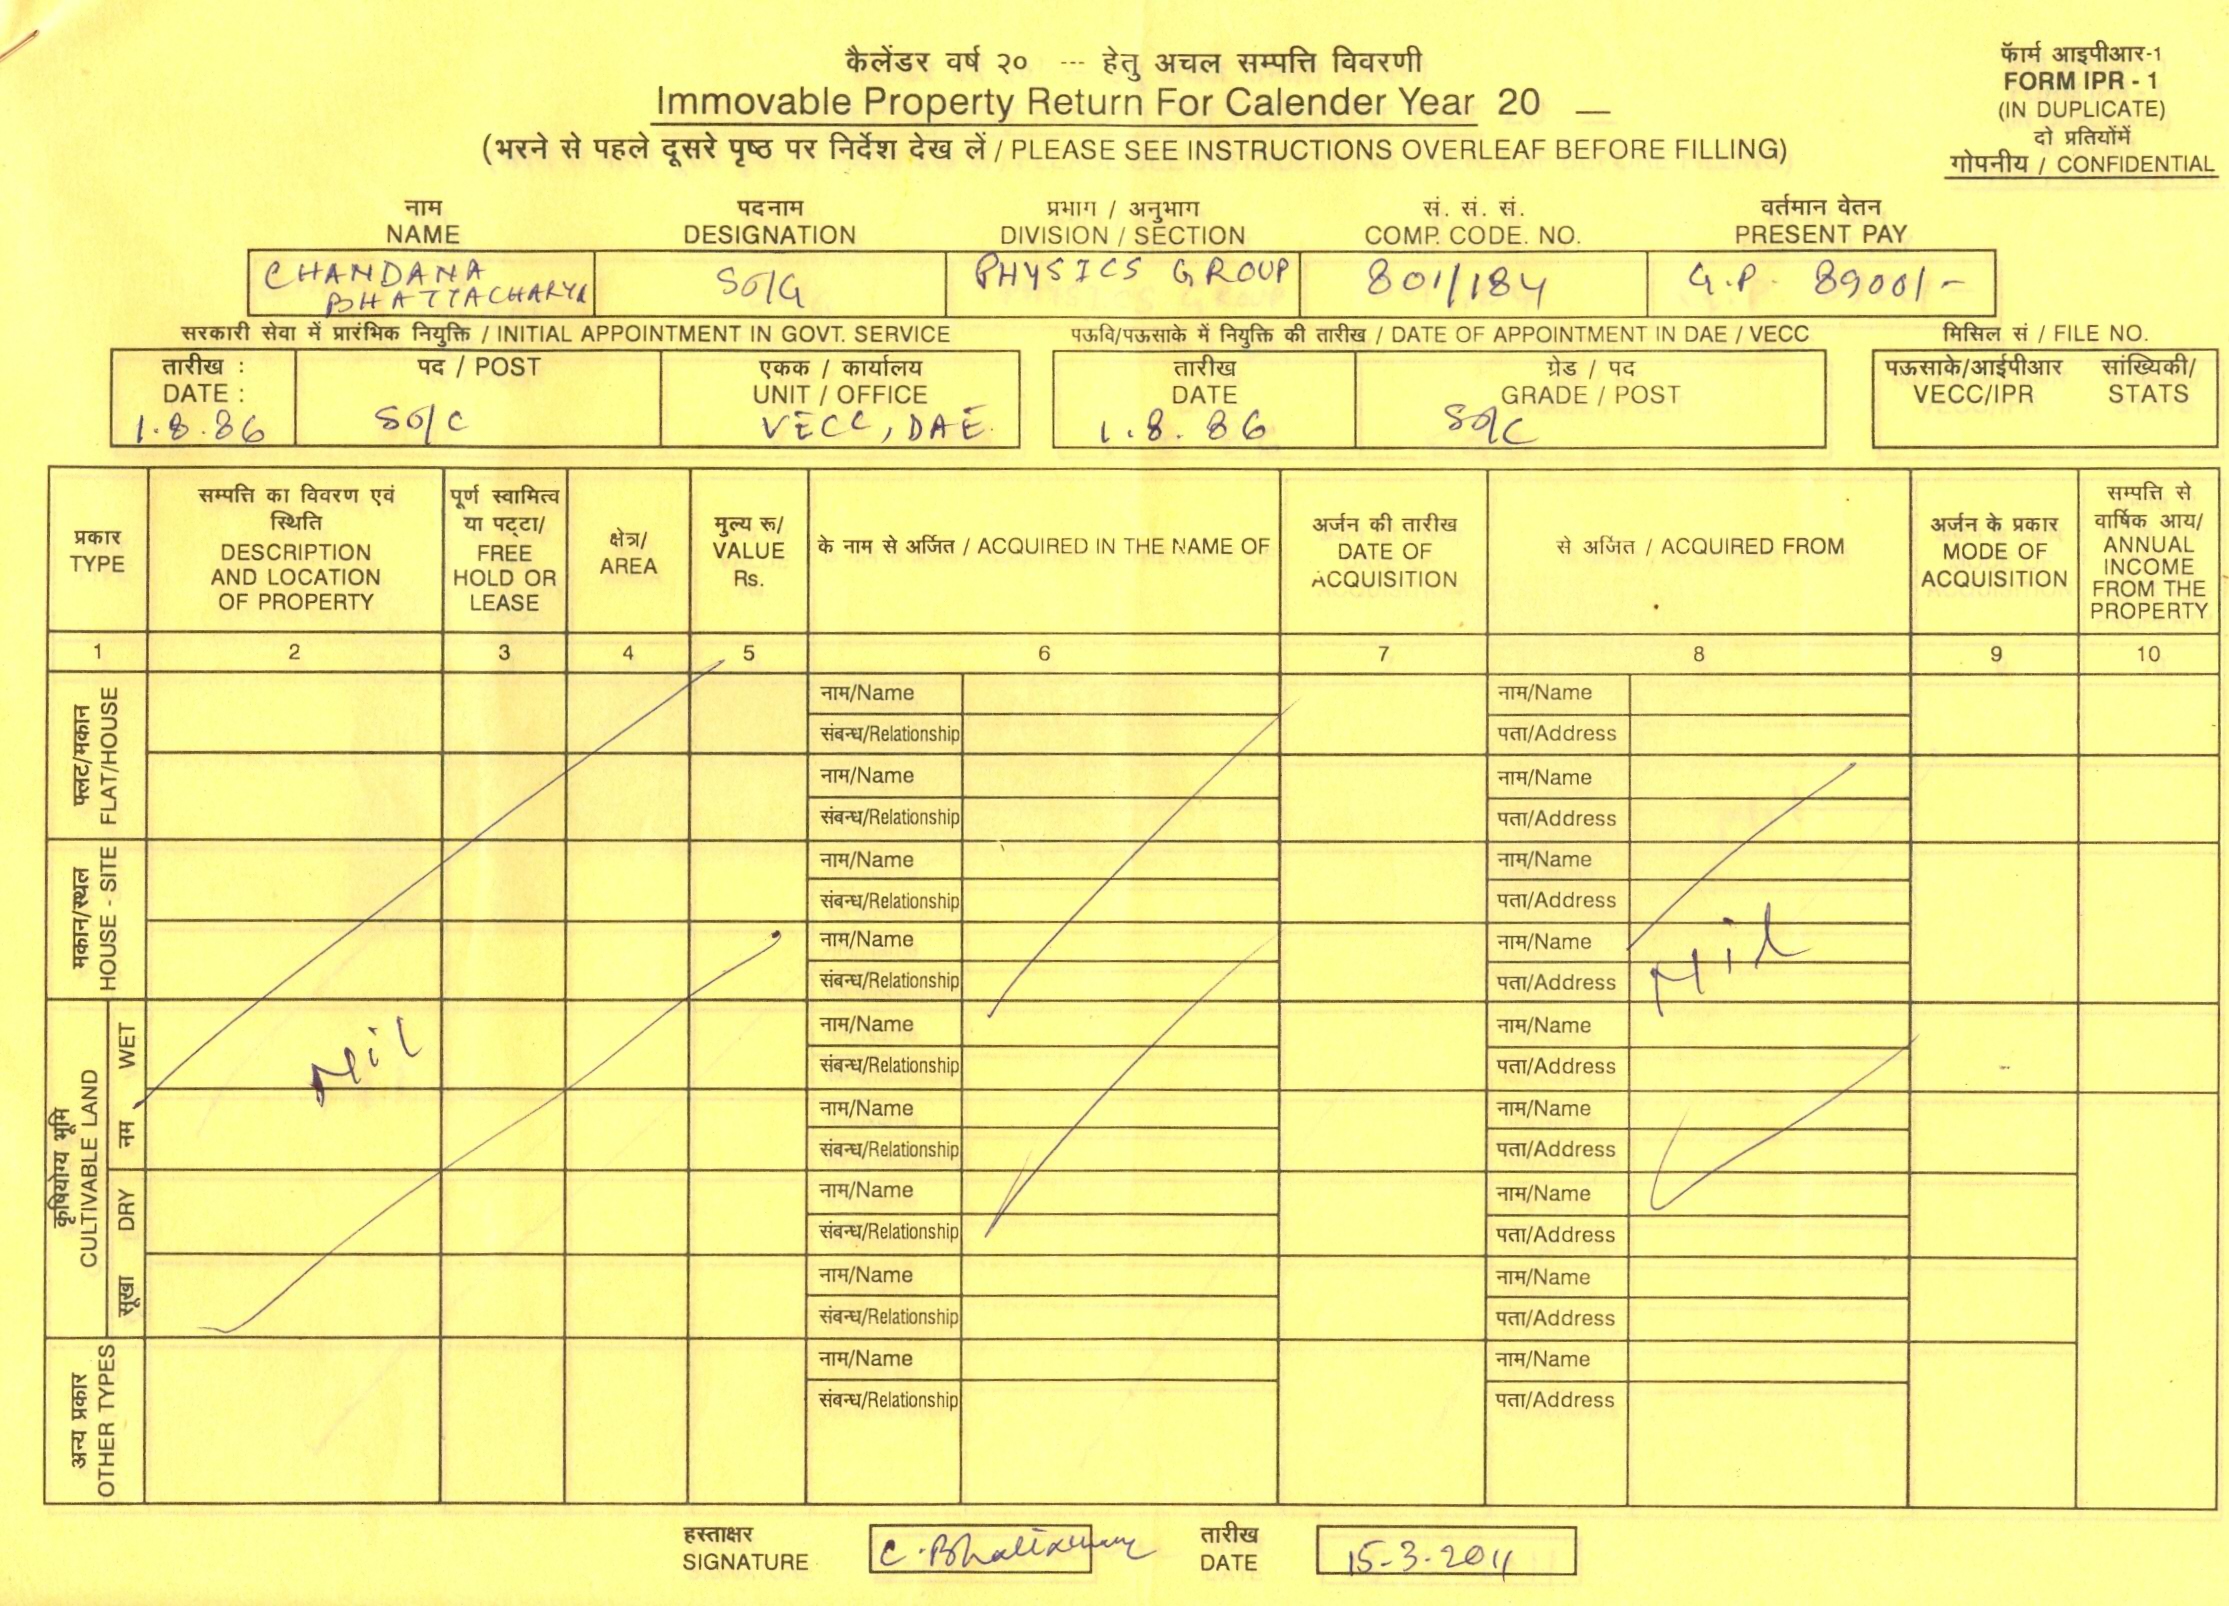 कैलेंडर वर्ष २० --- हेतु अचल सम्पत्ति विवरणी
Immovable Property Return For Calender Year 20 __
(भरने से पहले दूसरे पृष्ठ पर निर्देश देख लें / PLEASE SEE INSTRUCTIONS OVERLEAF BEFORE FILLING)
फॅार्म आइपीआर-1
FORM IPR - 1
(IN DUPLICATE)
दो प्रतियोंमें
गोपनीय / CONFIDENTIAL
नाम पदनाम प्रभाग / अनुभाग सं. सं. सं. वर्तमान वेतन
NAME DESIGNATION DIVISION / SECTION COMP. CODE. NO. PRESENT PAY
CHANDANA BHATTACHARYA SO/G PHYSICS GROUP 801/184 G.P. 8900/-
सरकारी सेवा में प्रारंभिक नियुक्ति / INITIAL APPOINTMENT IN GOVT. SERVICE पऊवि/पऊसाके में नियुक्ति की तारीख / DATE OF APPOINTMENT IN DAE / VECC मिसिल सं / FILE NO.
तारीख : पद / POST एकक / कार्यालय तारीख ग्रेड / पद पऊसाके/आईपीआर सांख्यिकी/
DATE : UNIT / OFFICE DATE GRADE / POST VECC/IPR STATS
1.8.86 SO/C VECC, DAE. 1.8.86 SO/C
प्रकार
TYPE
सम्पत्ति का विवरण एवं
स्थिति
DESCRIPTION
AND LOCATION
OF PROPERTY
पूर्ण स्वामित्व
या पट्टा/
FREE
HOLD OR
LEASE
क्षेत्र/
AREA
मुल्य रू/
VALUE
Rs.
के नाम से अर्जित / ACQUIRED IN THE NAME OF
अर्जन की तारीख
DATE OF
ACQUISITION
से अर्जित / ACQUIRED FROM
अर्जन के प्रकार
MODE OF
ACQUISITION
सम्पत्ति से
वार्षिक आय/
ANNUAL
INCOME
FROM THE
PROPERTY
1 2 3 4 5 6 7 8 9 10
फ्लट/मकान
FLAT/HOUSE
नाम/Name नाम/Name
संबन्ध/Relationship पता/Address
नाम/Name नाम/Name
संबन्ध/Relationship पता/Address
मकान/स्थल
HOUSE - SITE
नाम/Name नाम/Name
संबन्ध/Relationship पता/Address
नाम/Name नाम/Name
संबन्ध/Relationship पता/Address
Nil
कृषियोग्य भूमि
CULTIVABLE LAND
नम WET
Nil
नाम/Name नाम/Name
संबन्ध/Relationship पता/Address
नाम/Name नाम/Name
संबन्ध/Relationship पता/Address
सूखा DRY
नाम/Name नाम/Name
संबन्ध/Relationship पता/Address
नाम/Name नाम/Name
संबन्ध/Relationship पता/Address
अन्य प्रकार
OTHER TYPES
नाम/Name नाम/Name
संबन्ध/Relationship पता/Address
हस्ताक्षर तारीख
SIGNATURE C. Bhattacharya DATE 15-3-2011